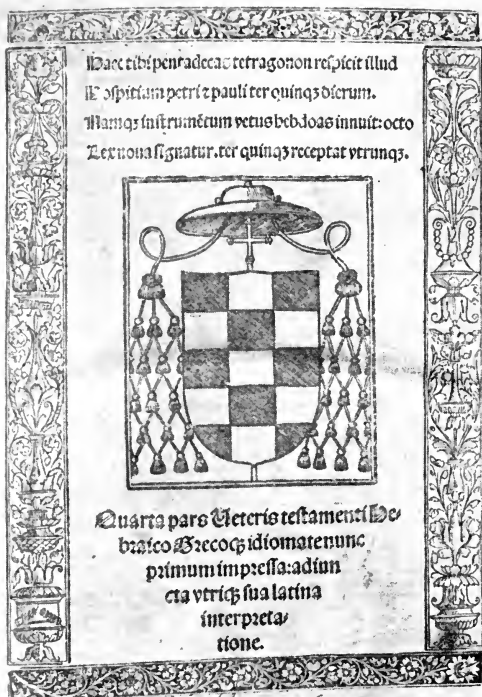 Haec tibi pentadecas tetragonon respicit illud
Hospitium petri ⁊ pauli ter quinqꝫ dierum.
Namqꝫ instrumẽtum vetus hebdoas innuit: octo
Lex noua signatur. ter quinqꝫ receptat vtrunqꝫ.
Quarta pars Veteris testamenti He⸗
braico Grecoqꝫ idiomate nunc
primum impressa: adiun
cta vtriqꝫ sua latina
interpreta⸗
tione.